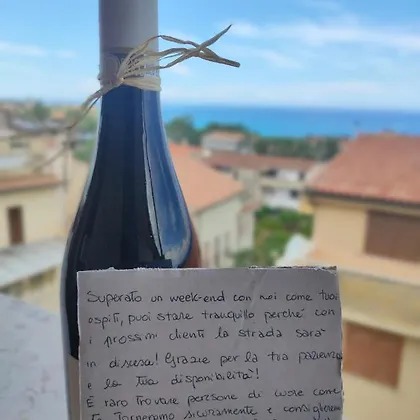 Superato un week-end con noi come tuoi
ospiti, puoi stare tranquillo perche' con
i prossimi clienti la strada sara'
in discesa! Grazie per la tua pazienza
e la tua disponibilita'!
E' raro trovare persone di cuore come
te. Torneremo sicuramente e consiglieremo